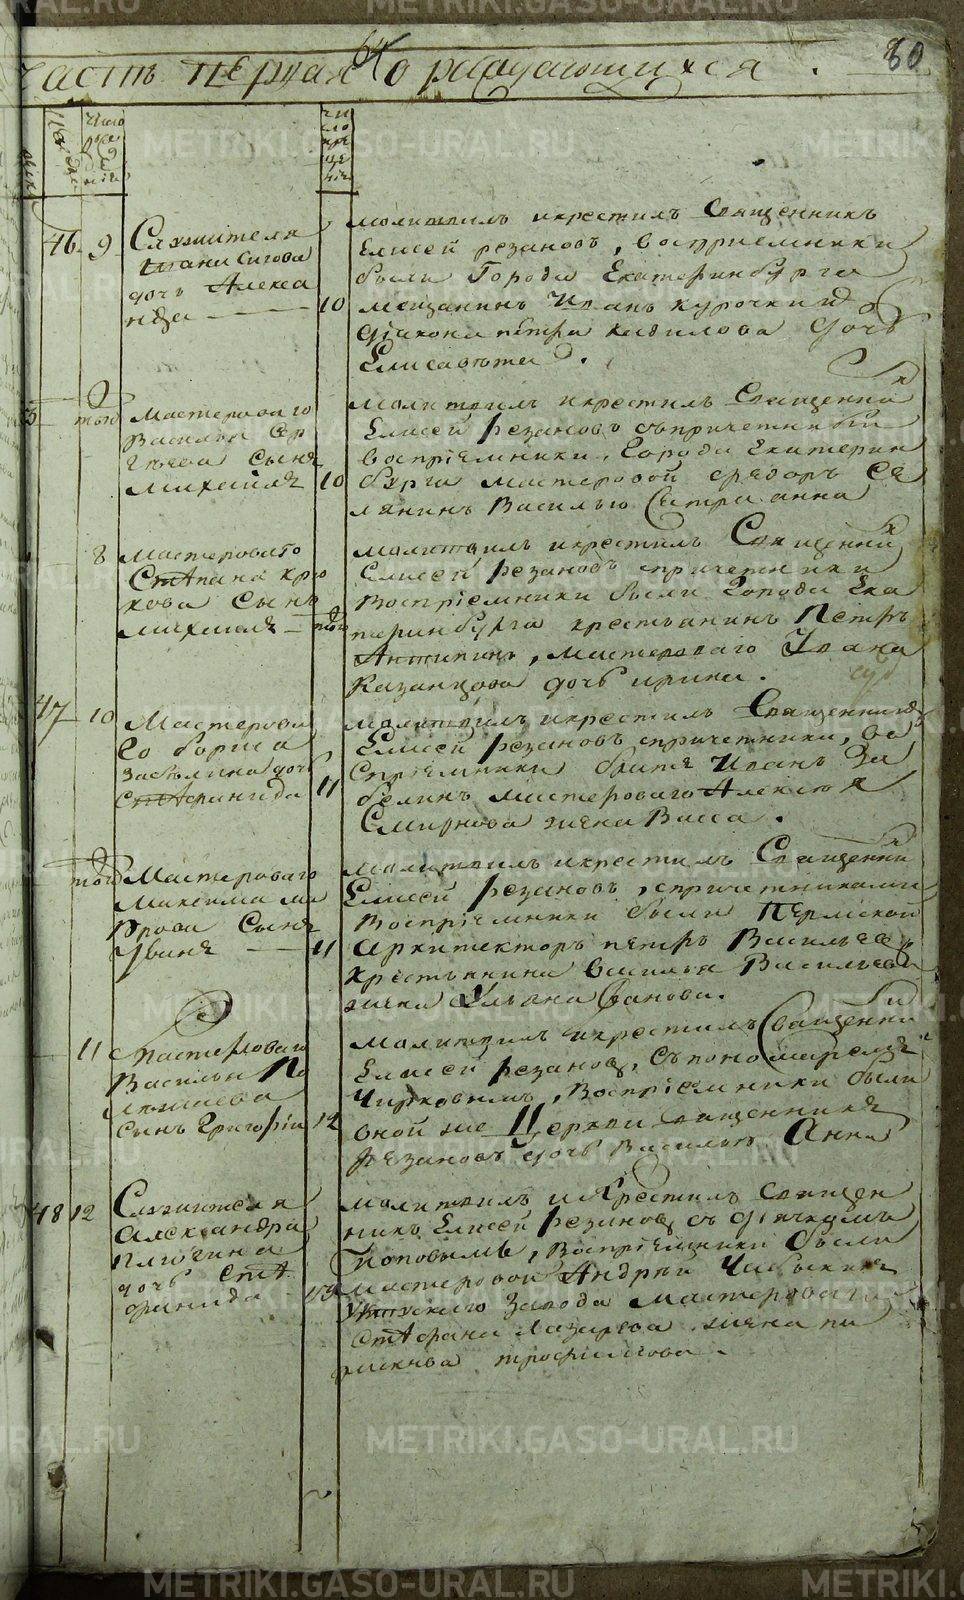 Часть первая о раждающихся.
80
число рожденія
число крещенія
46 9 Служителя
Ивана Сигова
дочь Алекса
ндра 10
молитвилъ и крестилъ Священникъ
Елисей резановъ, восприемники
были Города Екатеринбурга
мещанинъ Иванъ Курочкинъ
діакона петра кадилова дочь
Елисавета.
того Мастероваго
Василья Сер
гѣева сынъ
михаилъ 10
молитвилъ и крестилъ Священни
Елисей резановъ съпричетники
воспріемники, Города Екатерин
бурга мастеровой федоръ Се
лянинъ Василью Сестра анна
8 мастероваго
Степана крю
кова сынъ
михаилъ того
молитвилъ и крестилъ Священни
Елисей резановъ спричетники
воспріемники были Города Ека
теринбурга крестьанинъ Петръ
Антипинъ, мастероваго Ивана
Казанцова дочь ирина.
47 10 Мастерова
го бориса
забѣлина дочь
Стефанида 11
молитвилъ и крестилъ Священникъ
Елисей резановъ спричетники, во
спріемники братъ Иванъ За
белинъ мастероваго Алексѣя
Смирнова жена Васса.
того Мастероваго
Максима ма
сынъ
Иванъ 11
молитвилъ и крестилъ Священни
Елисей резановъ, спричетниками
воспріемники были Пермской
Архитекторъ петръ Васильевъ
крестьянина василья Васильева
жена Ульяна Иванова.
11 мастероваго
Василья По
сынъ Григорій 12
молитвилъ и крестилъ Священни
Елисей резановъ, съ пономаремъ
Чирковымъ, воспріемники были
оной же Церкви священника
резановъ дочь Василью Анна
48 12 Служителя
Александра
Плюгина
дочь Сте
фанида 13
молитвилъ и Крестилъ священ
никъ Елисей резановъ съ дьячкомъ
Поповымъ, воспріемники были
мастеровой Андрей
Уктускаго Завода мастероваго
Стефана Лазарева жена па
расковья трофимова.
METRIKI.GASO-URAL.RU